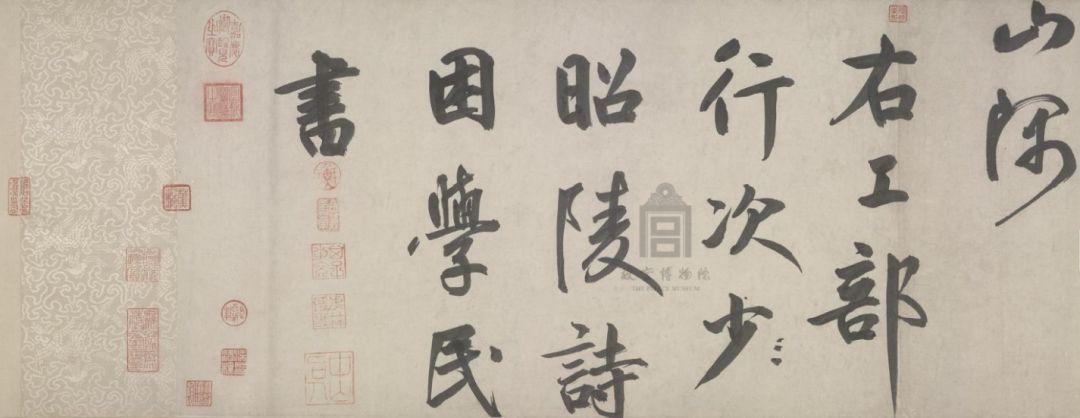 山隅
右工部
行次少
昭陵詩
困學民
書
嘉慶御覽之寶
故宫博物院
THE PALACE MUSEUM